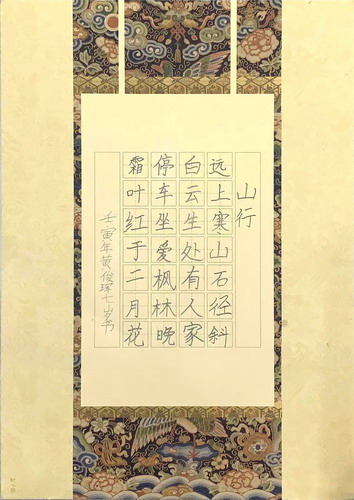 山行
远上寒山石径斜
白云生处有人家
停车坐爱枫林晚
霜叶红于二月花
壬寅年黄俊珲七岁书